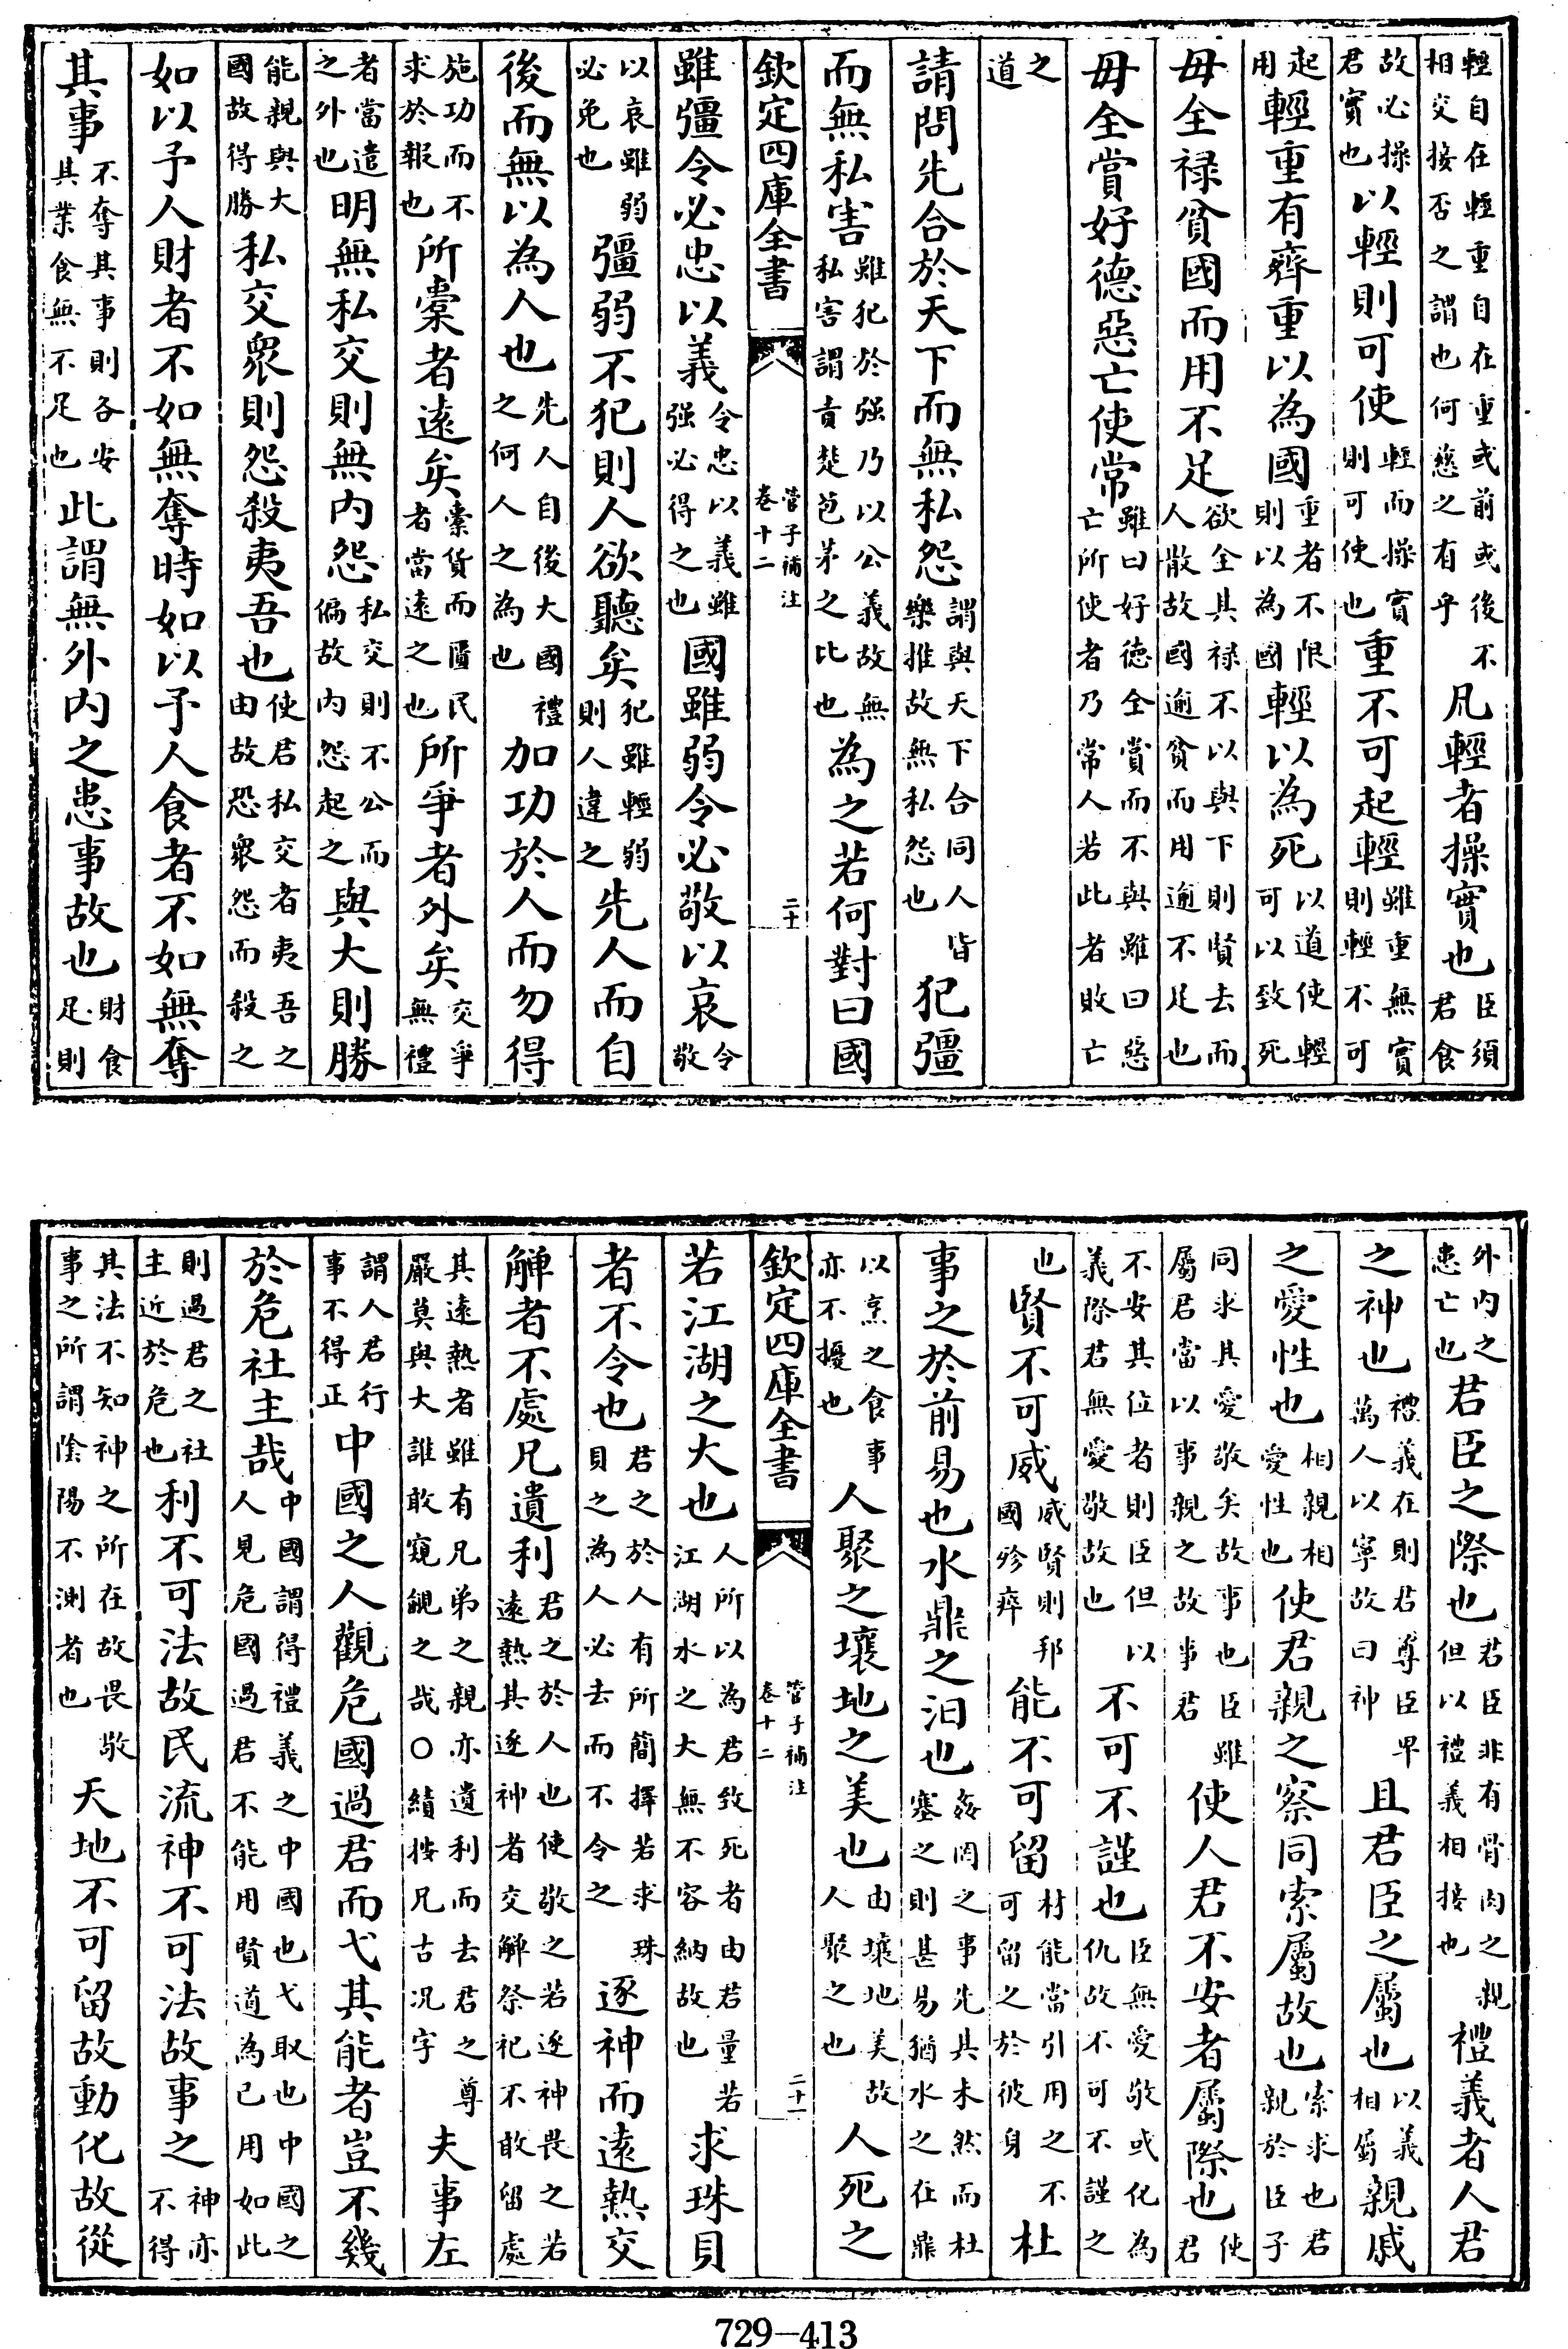 輕自在輕重自在重或前或後不相交接否之謂也何慈之有乎凡輕者操實也臣須君食
故必操君實也以輕則可使輕而操實則可使也重不可起輕雖重無實則輕不可
起用輕重有齊重以為國重者不限則以為國輕以為死以道使輕可以致死
毋全祿貧國而用不足欲全其祿不以與下則賢去而人散故國逾貧而用逾不足也
毋全賞好德惡亡使常雖曰好德全賞而不與雖曰惡亡所使者乃常人若此者敗亡
之道
請問先合於天下而無私怨謂與天下合同人皆樂推故無私怨也犯彊
而無私害雖犯於强乃以公義故無私害謂責楚苞茅之比也為之若何對曰國
欽定四庫全書 管子補注 卷十二 二十
雖彊令必忠以義令忠以義雖强必得之也國雖弱令必敬以哀令敬
以哀雖弱必免也彊弱不犯則人欲聽矣犯雖輕弱則人違之先人而自
後而無以為人也先人自後大國禮之何人之為也加功於人而勿得
施功而不求於報也所橐者遠矣橐貨而匱民者當遠之也所爭者外矣交爭無禮
者當遣之外也明無私交則無内怨私交則不公而偏故内怨起之與大則勝
能親與大國故得勝私交衆則怨殺夷吾也使君私交者夷吾之由故恐衆怨而殺之
如以予人財者不如無奪時如以予人食者不如無奪
其事不奪其事則各安其業食無不足也此謂無外内之患事故也財食足則
外内之患亡也君臣之際也君臣非有骨肉之親但以禮義相接也禮義者人君
之神也禮義在則君尊臣卑萬人以寧故曰神且君臣之屬也以義相屬親戚
之愛性也相親相愛性也使君親之察同索屬故也索求也君親於臣子
同求其愛敬矣故事也臣雖屬君當以事親之故事君使人君不安者屬際也使君
不安其位者則臣但以義際君無愛敬故也不可不謹也臣無愛敬或化為仇故不可不謹之
也賢不可威威賢則邦國殄瘁能不可留材能當引用之不可留之於彼身杜
事之於前易也水鼎之汨也姦罔之事先其未然而杜塞之則甚易猶水之在鼎
以烹之食事亦不擾也人聚之壤地之美也由壤地美故人聚之也人死之
欽定四庫全書 管子補注 卷十二 二十一
若江湖之大也人所以為君致死者由君量若江湖水之大無不容納故也求珠貝
者不令也君之於人有所簡擇若求珠貝之為人必去而不令之逐神而遠熱交
觶者不處兄遺利君之於人也使敬之若逐神畏之若遠熱其逐神者交觶祭祀不敢留處
其遠熱者雖有兄弟之親亦遺利而去君之尊嚴莫與大誰敢窺覦之哉○績按兄古况字夫事左
謂人君行事不得正中國之人觀危國過君而弋其能者豈不幾
於危社主哉中國謂得禮義之中國也弋取也中國之人見危國過君不能用賢道為己用如此
則過君之社主近於危也利不可法故民流神不可法故事之神亦不得
其法不知神之所在故畏敬事之所謂陰陽不測者也天地不可留故動化故從
729—413